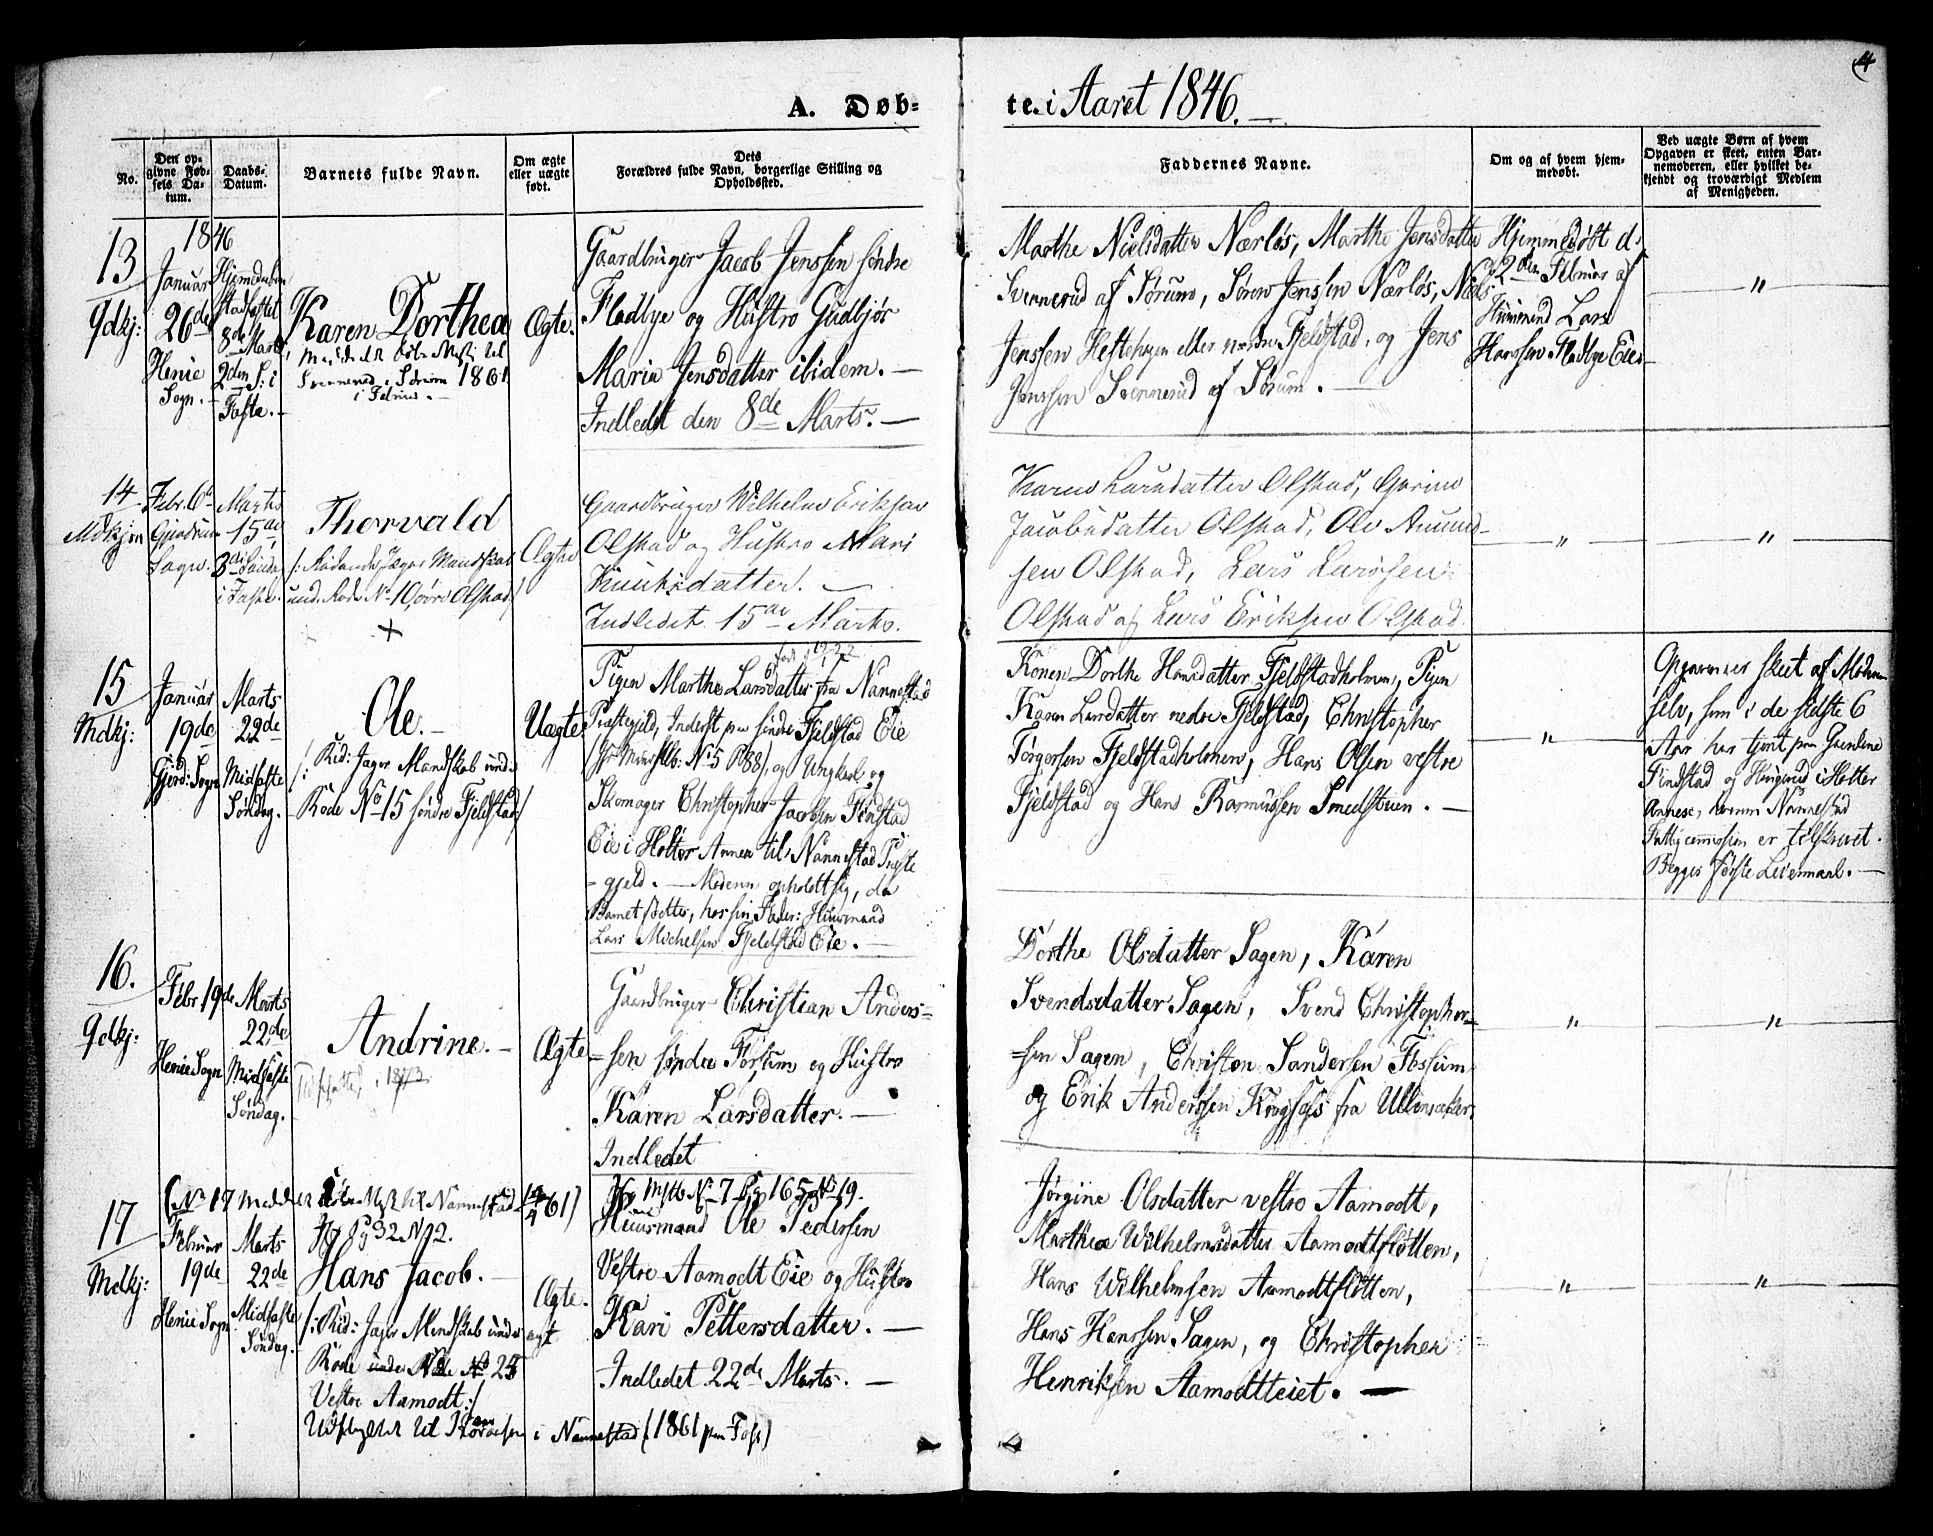 4
A. Døb-
te i Aaret 1846.
No.
Den op-
givne Fød-
sels Da-
tum.
Daabs-
Datum.
Barnets fulde Navn.
Om ægte
eller uægte
født.
Dets
Forældres fulde Navn, borgerlige Stilling og
Opholdssted.
Faddernes Navne.
Om og af hvem hjem-
medøbt.
Ved uægte Børn af hvem
Opgaven er skeet, enten Bar-
nemoderen, eller hvilket be-
kjendt og troværdigt Medlem
af Menigheden.
13
Qdkj:
1846
Januar
26de
Henie
Sogn.
Hjemedaaben
stadfæstet
8de Marts
2den S: i
Faste.
Karen Dorthea
til
Svennerud i Sørum 1861
i Februar.
Ægte.
Gaardbruger Jacob Jenssen søndre
Fladbye og Hustro Gudbjør
Maria Jensdatter ibidem.
Indledet den 8de Marts.
Marthe Nielsdatter Nærløs, Marthe Jensdatter
Svennerud af Sørum, Søren Jenssen Nærløs, Niels
Jenssen Heftehagen eller nordre Fjeldstad, og Jens
Jenssen Svennerud af Sørum.
Hjemmedøbt d.
2den Februar af
Huusmand Lars
Hanssen Fladbye Eie
"
14
Mdkjøn
Febr. 6te
Gjerdrum
Sogn.
Marts
15de
3die Sønda
i Faste.
Thorvald
/: Ridende Jæger Mandskab
und. Rode No 1 Øvre Olstad/
+
Ægte
Gaardbruger Wilhelm Eriksen
Olstad og Hustro Mari
Knutsdatter.
Indledet 15de Marts.
Karen Larsdatter Olstad,
Jacobsdatter Olstad, Ole Amund-
sen Olstad, Lars Larssen
Olstad af Lars Eriksen Olstad.
"
"
15
Mdkj:
Januar
19de
Gjerd: Sogn
Marts
22de
Midfaste
Søndag.
Ole.
/: Rid: Jæger Mandskab und:
Rode No 15 søndre Fjeldstad/
Uægte
Pigen Marthe Larsdatter fra Nannestad
Præstegjeld, Inderst paa søndre Fjeldstad Eie
No 5 P 88/, og Ungkarl og
Skomager Christopher Jacobsen Findstad
Eie i Holter Annex til Nannestad Præste
-gjeld. - Moderen opholdt sig, da
Barnet fødtes, hos sin Fader: Huusmand
Lars Michelsen Fjeldstad Eie.
Konen Dorthe Hansdatter Fjeldstadholmen, Pigen
Karen Larsdatter nedre Fjeldstad, Christopher
Torgersen Fjeldstadholmen, Hans Olsen vestre
Fjeldstad og Hans Rasmussen Smedstuen.
"
Opgaven er skeet af Moderen
selv, som i de sidste 6
Aar har tjent paa Gaardene
Findstad og Haugerud i Holter
Annex, hvorom Nannestad
Fattigcommission er tilskrevet.
Begges første Leiermaal.
16.
Qdkj:
Febr. 19de
Henie Sogn
Marts
22de
Midfaste
Søndag.
Andrine.
Ægte
Gaardbruger Christian Anders-
-sen søndre Fossum og Hustro
Karen Larsdatter.
Indledet
Dorthe Olsdatter Sagen, Karen
Svendsdatter Sagen, Svend Christopher-
-sen Sagen, Christen Sandersen Fossum
og Erik Anderssen Krogfos fra Ullensaker.
"
"
(No 17 til Nannestad 61)
17
Mdkj:
Februar
19de
Henie Sogn
Marts
22de
Midfaste
Søndag.
Hans Jacob.
/: Rid: Jæger Mandskab under
Rode No 25
Vestre Aamodt:/
i Nannestad (1861
Ægte.
No 7 Pag 165 No 19.
Huusmand Ole Pedersen
Vestre Aamodt Eie og Hustro
Kari Pettersdatter.
Indledet 22de Marts.
Jørgine Olsdatter vestre Aamodt,
Marthea Wilhelmsdatter Aamodtfløtten,
Hans Wilhelmsen Aamodtfløtten,
Hans Hanssen Sagen, og Christopher
Henriksen Aamodteiet.
"
"